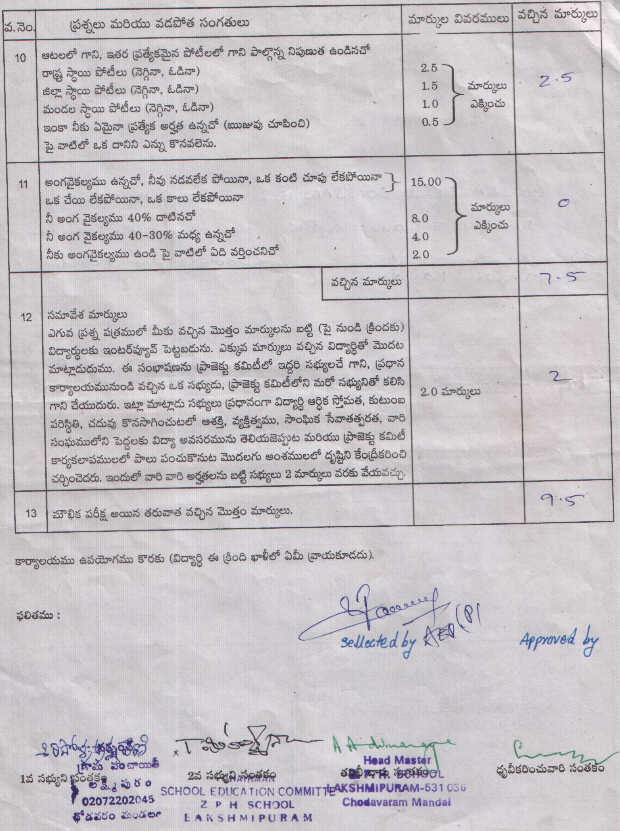 వ.నెం. ప్రశ్నలు మరియు వడపోత సంగతులు మార్కుల వివరములు వచ్చిన మార్కులు
10 ఆటలలో గాని, ఇతర ప్రత్యేకమైన పోటీలలో గాని పాల్గొన్న నిపుణుత ఉండినచో
రాష్ట్ర స్థాయి పోటీలు (నెగ్గినా, ఓడినా) 2.5
జిల్లా స్థాయి పోటీలు (నెగ్గినా, ఓడినా) 1.5 మార్కులు 2.5
మండల స్థాయి పోటీలు (నెగ్గినా, ఓడినా) 1.0 ఎక్కించు
ఇంకా నీకు ఏమైనా ప్రత్యేక అర్హత ఉన్నచో (ఋజువు చూపించి) 0.5
పై వాటిలో ఒక దానిని ఎన్ను కొనవలెను.
11 అంగవైకల్యము ఉన్నచో, నీవు నడవలేక పోయినా, ఒక కంటి చూపు లేకపోయినా 15.00
ఒక చేయి లేకపోయినా, ఒక కాలు లేకపోయినా మార్కులు 0
నీ అంగ వైకల్యము 40% దాటినచో 8.0 ఎక్కించు
నీ అంగ వైకల్యము 40-30% మధ్య ఉన్నచో 4.0
నీకు అంగవైకల్యము ఉండి పై వాటిలో ఏది వర్తించనిచో 2.0
వచ్చిన మార్కులు 7.5
12 సమావేశ మార్కులు
ఎగువ ప్రశ్న పత్రములో మీకు వచ్చిన మొత్తం మార్కులను బట్టి (పై నుండి క్రిందకు)
విద్యార్థులకు ఇంటర్‌వ్యూన్ పెట్టబడును. ఎక్కువ మార్కులు వచ్చిన విద్యార్థితో మొదట
మాట్లాడుదుము. ఈ సంభాషణను ప్రాజెక్టు కమిటీలో ఇద్దరి సభ్యులచే గాని, ప్రధాన
కార్యాలయమునుండి వచ్చిన ఒక సభ్యుడు, ప్రాజెక్టు కమిటీలోని మరో సభ్యునితో కలిసి
గాని చేయుదురు. ఇట్లా మాట్లాడు సభ్యులు ప్రధానంగా విద్యార్థి ఆర్థిక స్తోమత, కుటుంబ 2.0 మార్కులు 2
పరిస్థితి, చదువు కొనసాగించుటలో ఆశక్తి, వ్యక్తిత్వము, సాంఘిక సేవాతత్పరత, వారి
సంఘములోని పెద్దలకు విద్యా అవసరమును తెలియజెప్పుట మరియు ప్రాజెక్టు కమిటీ
కార్యకలాపములలో పాలు పంచుకొనుట మొదలగు అంశములలో దృష్టిని కేంద్రీకరించి
చర్చించెదరు. ఇందులో వారి వారి అర్హతలను బట్టి సభ్యులు 2 మార్కులు వరకు వేయవచ్చు.
13 మౌలిక పరీక్ష అయిన తరువాత వచ్చిన మొత్తం మార్కులు. 9.5
కార్యాలయము ఉపయోగము కొరకు (విద్యార్థి ఈ క్రింది ఖాళీలో ఏమీ వ్రాయకూడదు).
ఫలితము :
Sellected by Approved by
1వ సభ్యుని సంతకం 2వ సభ్యుని సంతకం ధృవీకరించువారి సంతకం
గ్రామ పంచాయితీ
లక్ష్మీపురం
02072202045
చోడవరం మండలం
SCHOOL EDUCATION COMMITTE
Z P H SCHOOL
LAKSHMIPURAM
Head Master
SCHOOL
LAKSHMIPURAM-531036
Chodavaram Mandal